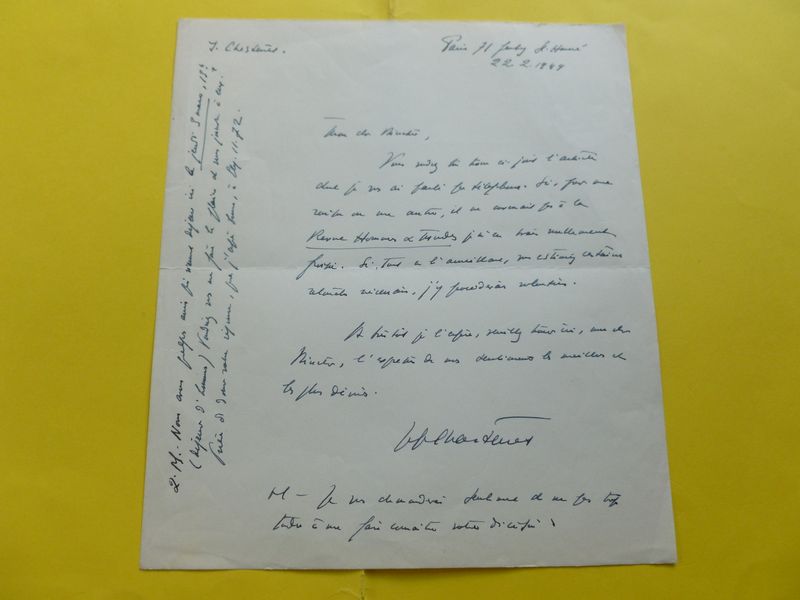 J. Chastenet.
Paris 71 faubg St. Honoré
22.2.1949
Mon cher Ministre,
Vous voudrez bien trouver ci-joint l'article
dont je vous ai parlé par téléphone. Si, pour une
raison ou une autre, il ne convenait pas à la
Revue Hommes et Mondes, je n'en serais nullement
froissé. Si, tout en l'accueillant, vous estimiez certaines
retouches nécessaires, j'y procéderais volontiers.
A bientôt je l'espère, veuillez trouver ici, mon cher
Ministre, l'expression de mes sentiments les meilleurs et
les plus dévoués.
Chastenet
Je vous demanderai seulement de ne pas trop
tarder à me faire connaître votre décision
2. P.S. - Nous avons quelques amis à déjeuner ici le jeudi 3 mars, 13h
(déjeuner d'hommes) Voulez-vous me faire le plaisir de vous joindre à eux.